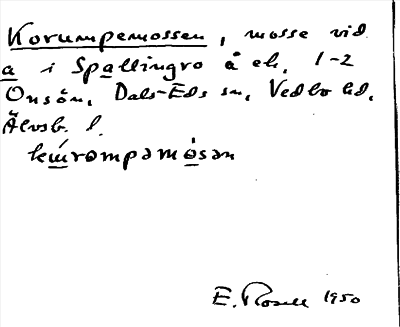 Korumpemossen, mosse vid
a i Spallingro å ek. 1-2
Onsön, Dals-Eds sn, Vedbo hd,
Älvsb. l.
kẃrompamósan
E. Rosell 1950